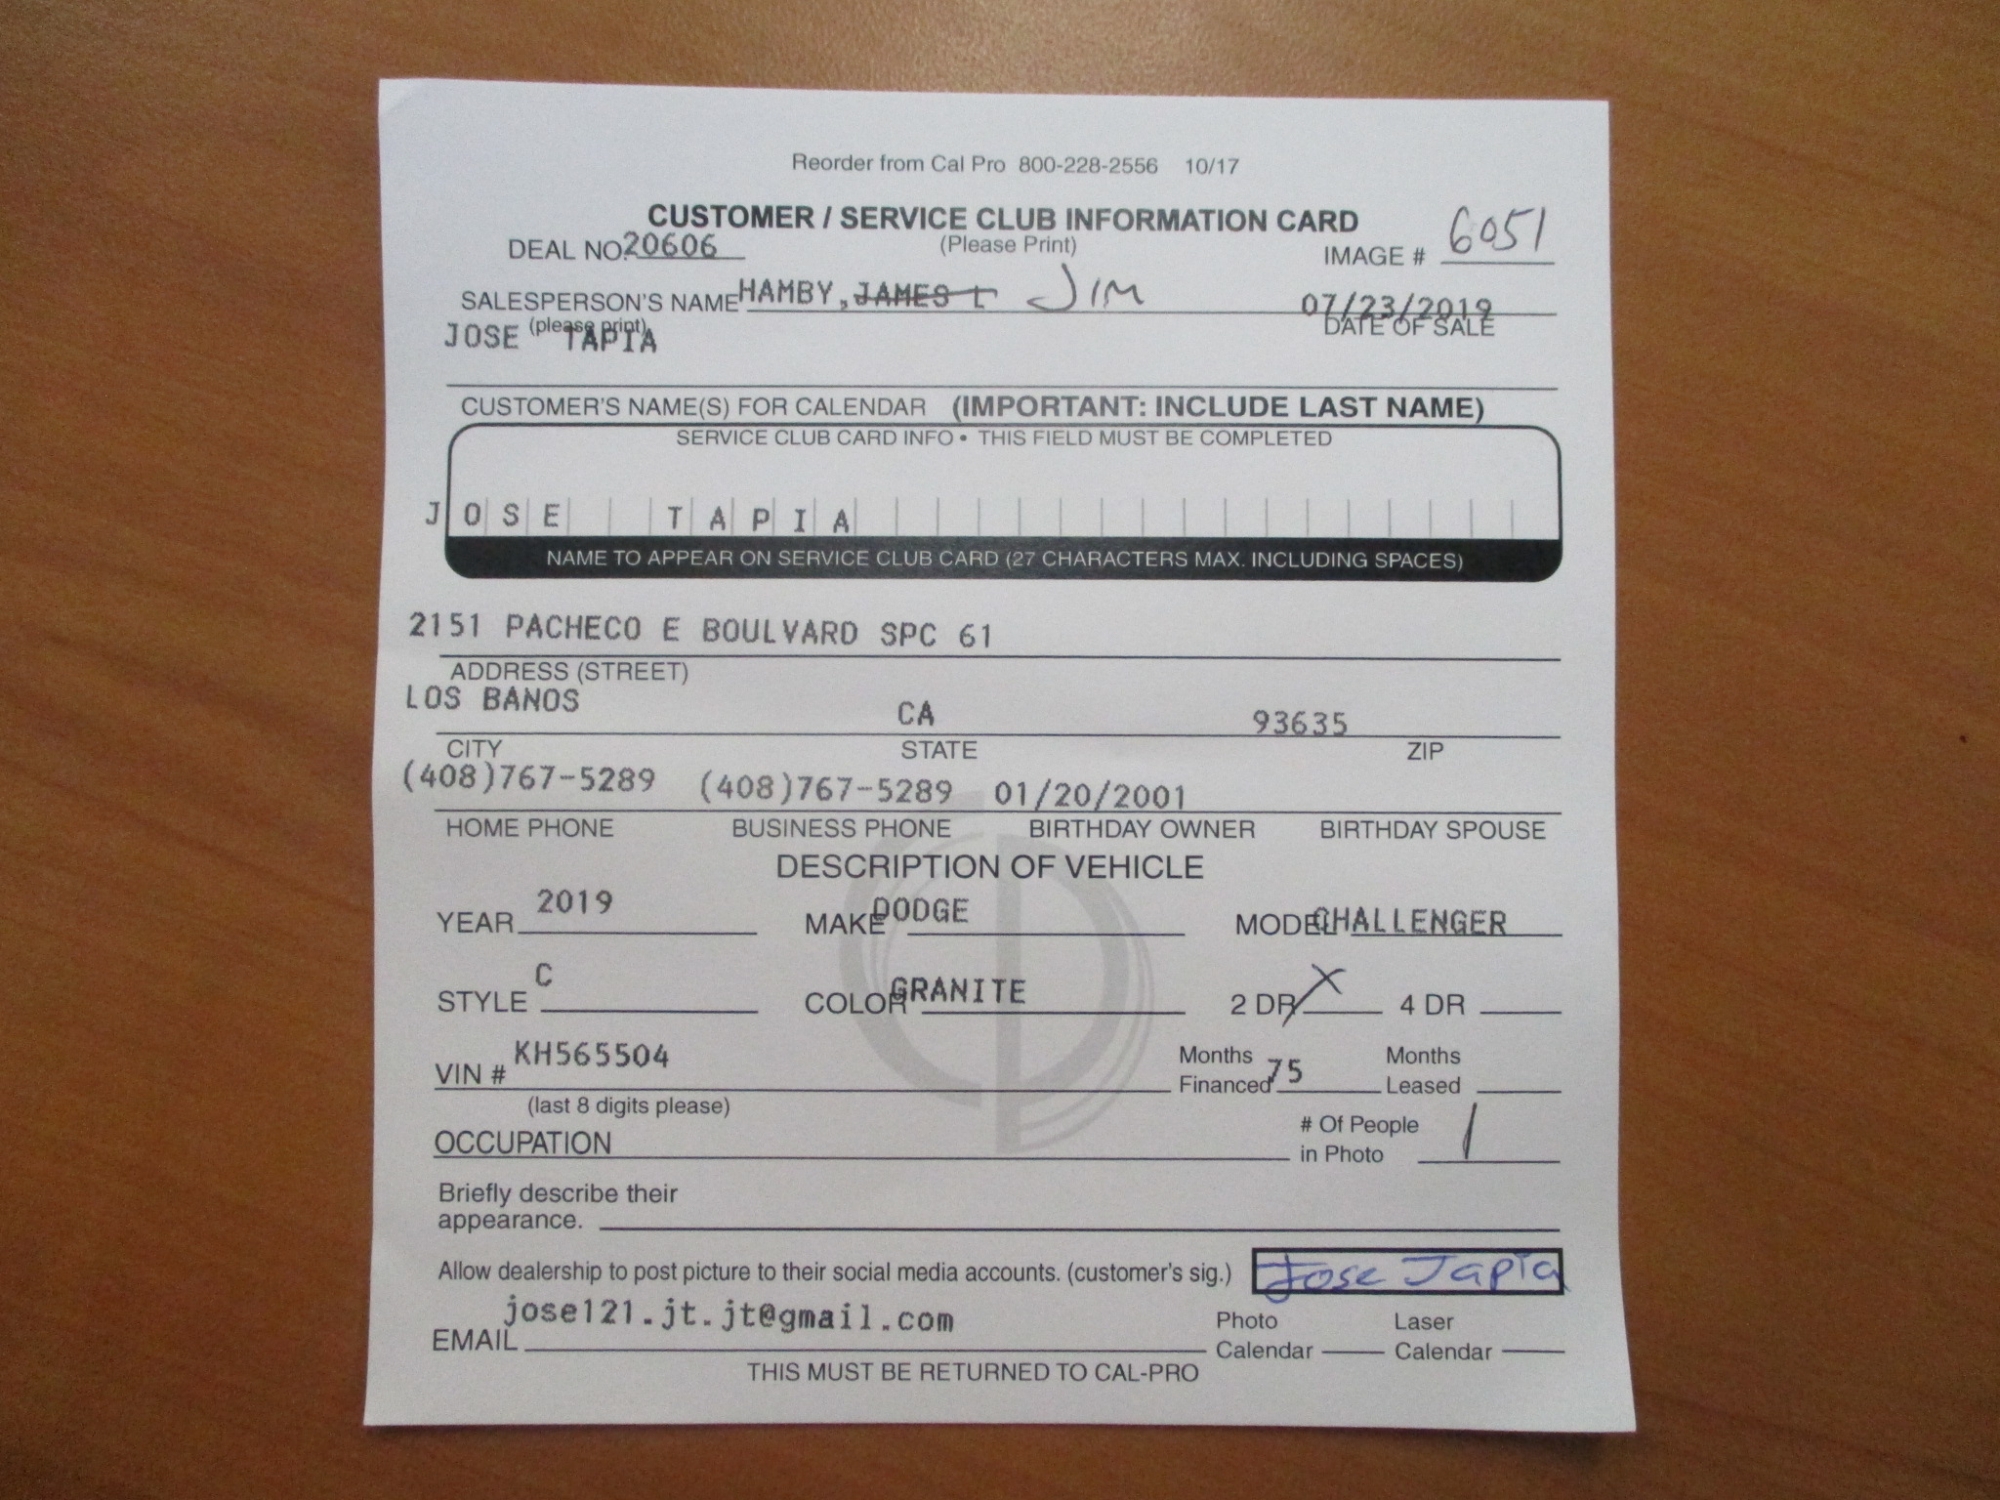 Reorder from Cal Pro 800-228-2556 10/17
CUSTOMER / SERVICE CLUB INFORMATION CARD
DEAL NO. 20606 (Please Print) IMAGE # 6051
SALESPERSON'S NAME HAMBY, JAMES L JIM 07/23/2019
(please print) DATE OF SALE
JOSE TAPIA
CUSTOMER'S NAME(S) FOR CALENDAR (IMPORTANT: INCLUDE LAST NAME)
SERVICE CLUB CARD INFO • THIS FIELD MUST BE COMPLETED
JOSE TAPIA
NAME TO APPEAR ON SERVICE CLUB CARD (27 CHARACTERS MAX. INCLUDING SPACES)
2151 PACHECO E BOULVARD SPC 61
ADDRESS (STREET)
LOS BANOS CA 93635
CITY STATE ZIP
(408)767-5289 (408)767-5289 01/20/2001
HOME PHONE BUSINESS PHONE BIRTHDAY OWNER BIRTHDAY SPOUSE
DESCRIPTION OF VEHICLE
YEAR 2019 MAKE DODGE MODEL CHALLENGER
STYLE C COLOR GRANITE 2 DR X 4 DR
VIN # KH565504 Months Financed 75 Months Leased
(last 8 digits please)
OCCUPATION # Of People in Photo 1
Briefly describe their
appearance.
Allow dealership to post picture to their social media accounts. (customer's sig.) Jose Tapia
EMAIL jose121.jt.jt@gmail.com Photo Calendar Laser Calendar
THIS MUST BE RETURNED TO CAL-PRO